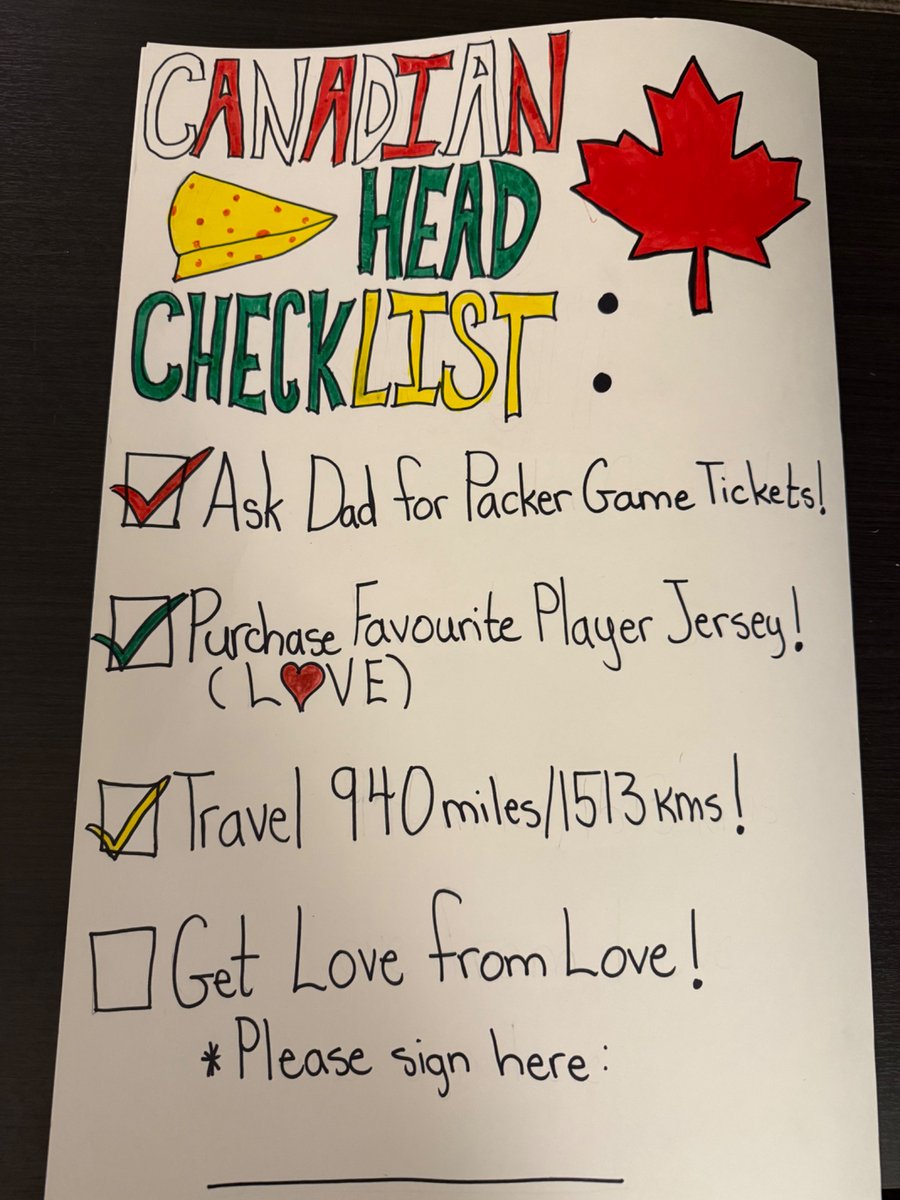 CANADIAN
HEAD
CHECKLIST :
Ask Dad for Packer Game Tickets!
Purchase Favourite Player Jersey!
(L❤VE)
Travel 940 miles/1513 kms!
Get Love from Love!
* Please sign here: